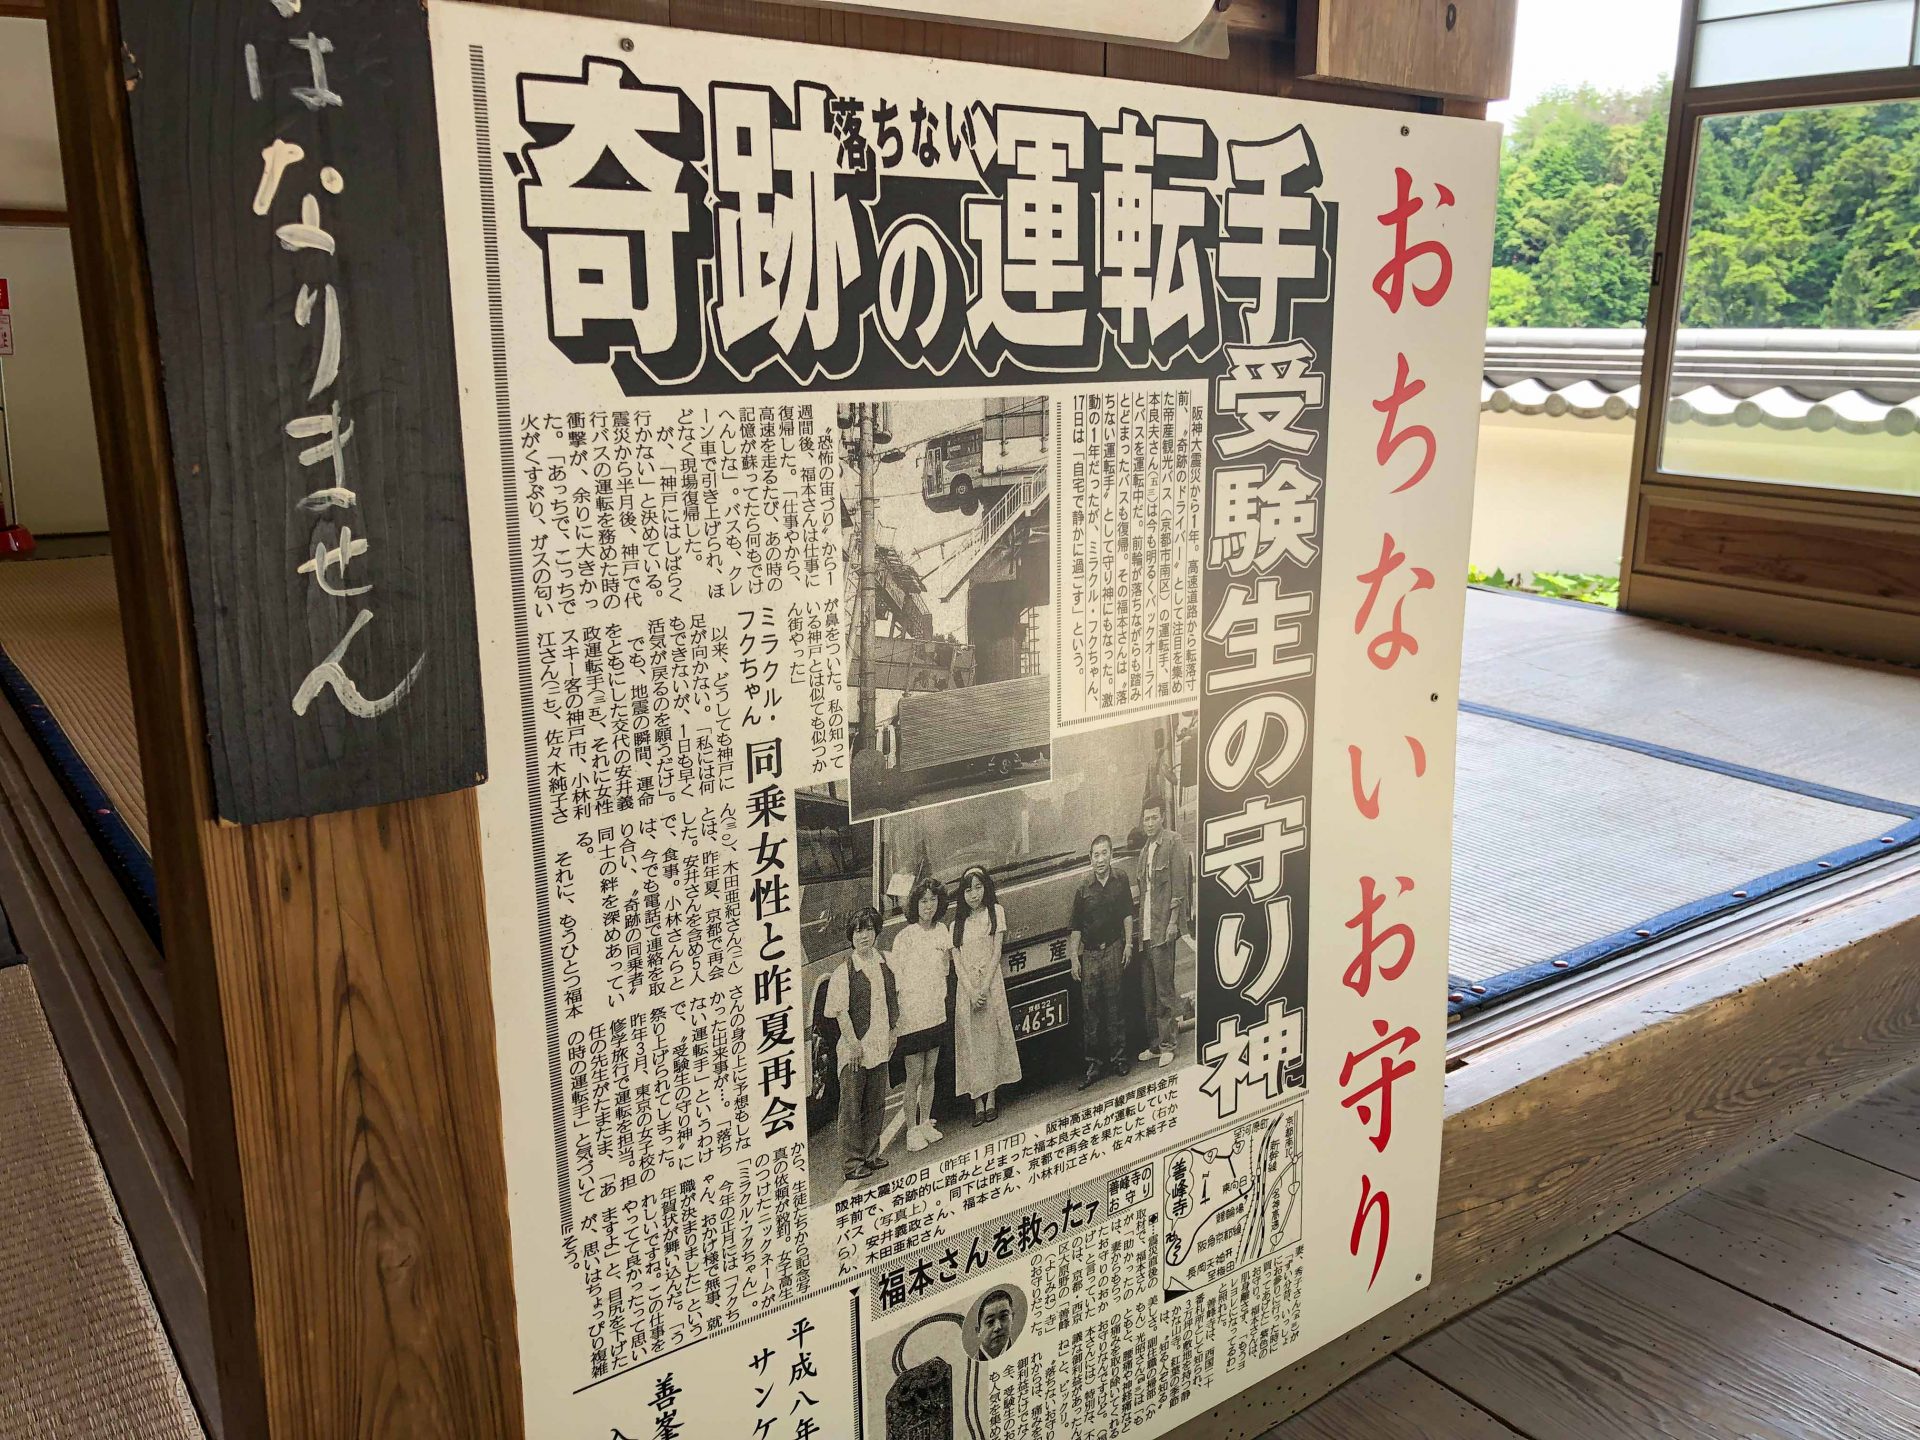 はなりません
おちないお守り
落ちない
奇跡の運転手
受験生の守り神に
阪神大震災から1年。高速道路から転落寸
前、〝奇跡のドライバー〟として注目を集め
た帝産観光バス（京都市南区）の運転手、福
本良夫さん（五三）は今も明るくバックオーライ
とバスを運転中だ。前輪が落ちながらも踏み
とどまったバスも復帰。その福本さんは〝落
ちない運転手〟として守り神にもなった。激
動の1年だったが、ミラクル・フクちゃん、
17日は「自宅で静かに過ごす」という。
〝恐怖の宙づり〟から1
週間後、福本さんは仕事に
復帰した。「仕事やから、
高速を走るたび、あの時の
記憶が蘇ってたら何もでけ
へんしな」。バスも、クレ
ーン車で引き上げられ、ほ
どなく現場復帰した。
が、「神戸にはしばらく
行かない」と決めている。
震災から半月後、神戸で代
行バスの運転を務めた時の
衝撃が、余りに大きかっ
た。「あっちで、こっちで
火がくすぶり、ガスの匂い
が鼻をついた。私の知って
いる神戸とは似ても似つか
ん街やった」
ミラクル・
フクちゃん
同乗女性と昨夏再会
以来、どうしても神戸に
足が向かない。「私には何
もできないが、1日も早く
活気が戻るのを願うだけ」。
でも、地震の瞬間、運命
をともにした交代の安井義
政運転手（三五）、それに女性
スキー客の神戸市、小林利
江さん（二七）、佐々木純子さ
ん（三〇）、木田亜紀さん（二八）
とは、昨年夏、京都で再会
した。安井さんを含め5人
で、食事。小林さんらと
は、今でも電話で連絡を取
り合い、〝奇跡の同乗者〟
同士の絆を深めあってい
る。
それに、もうひとつ福本
さんの身の上に予想もしな
かった出来事が…。「落ち
ない運転手」というわけ
で、〝受験生の守り神〟に
祭り上げられてしまった。
昨年3月、東京の女子校の
修学旅行で運転を担当。担
任の先生がたまたま、「あ
の時の運転手」と気づいて
から、生徒たちから記念写
真の依頼が殺到。女子高生
のつけたニックネームが
「ミラクル・フクちゃん」。
今年の正月には「フクち
ゃん、おかげ様で無事、就
職が決まりました」という
年賀状が舞い込んだ。「う
れしいですね。この仕事を
やってて良かったって思い
ますよ」と、目尻を下げた
が、思いはちょっぴり複雑
そう。
帝産
46-51
阪神大震災の日（昨年1月17日）、阪神高速神戸線芦屋料金所
手前で、奇跡的に踏みとどまった福本良夫さんが運転していた
バス（写真上）。同下は昨夏、京都で再会を果たした（右か
ら）、安井義政さん、福本さん、小林利江さん、佐々木純子さ
ん、木田亜紀さん
善峰寺のお守り
福本さんを救ったァ
善峰寺
京都南
新幹線
名神高速
東向日
阪急京都線
長岡天神
至梅田
至河原町
震災直後の
取材で、福本さん
が「助かったの
は、妻からもらっ
たお守りのおか
げ」と言って、いた
のは、京都・西京
区大原野の「善峰
（よしみね）寺」
のお守りだった。
平成八年
サンケ
善峯